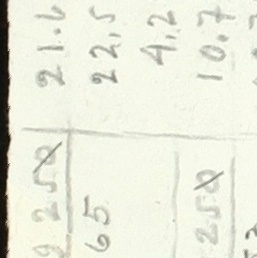 250 21.6
65 22,5
4,2
250 10.7